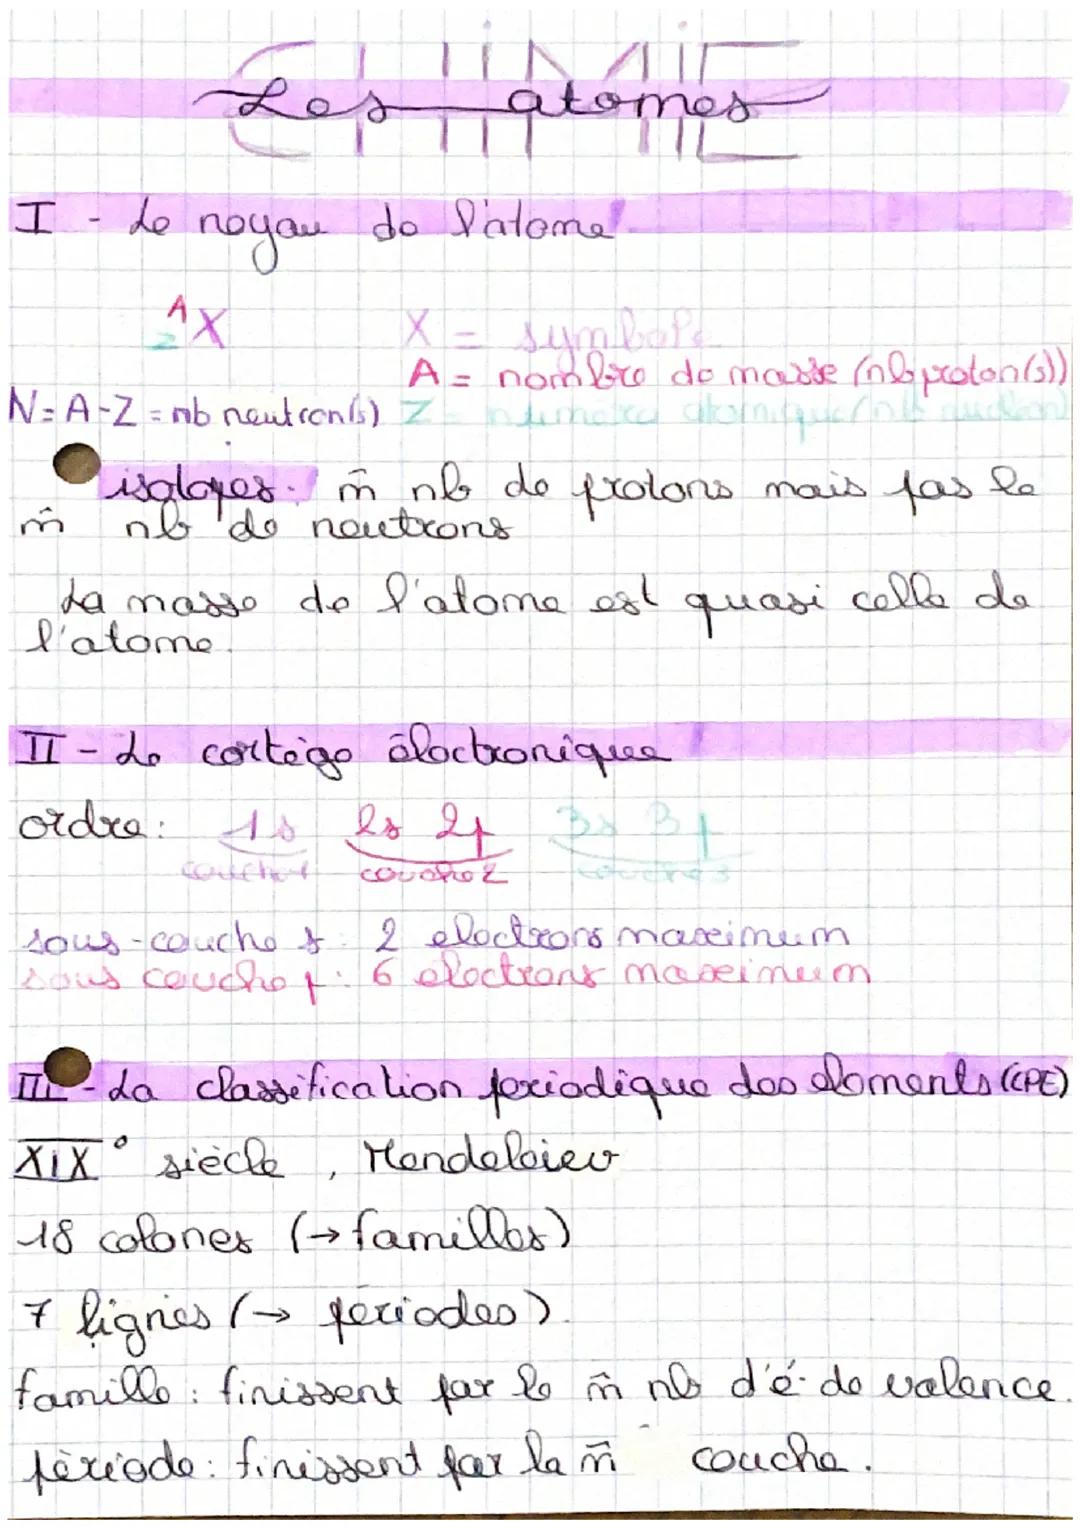 CHIMIE
Les atomes
I - Le noyau de l'atome
A
Z X
X = symbole
A = nombre de masse (nb proton(s))
N = A-Z = nb neutron(s) Z = numéro atomique (nb nucléon)
isotopes. m̂ nb de protons mais pas le
m̂ nb de neutrons
La masse de l'atome est quasi celle de
l'atome.
II - Le cortège électronique
ordre: 1s 2s 2p 3s 3p
couche 1 couche 2 couche 3
sous-couche s: 2 electrons maximum
sous couche p: 6 électrons maximum
III - La classification periodique des elements (CPE)
XIX° siècle, Mendeleiev
18 colones (→ familles)
7 lignes (→ périodes).
famille : finissent par le m̂ nb d'é de valence.
période : finissent par la m̂ couche.